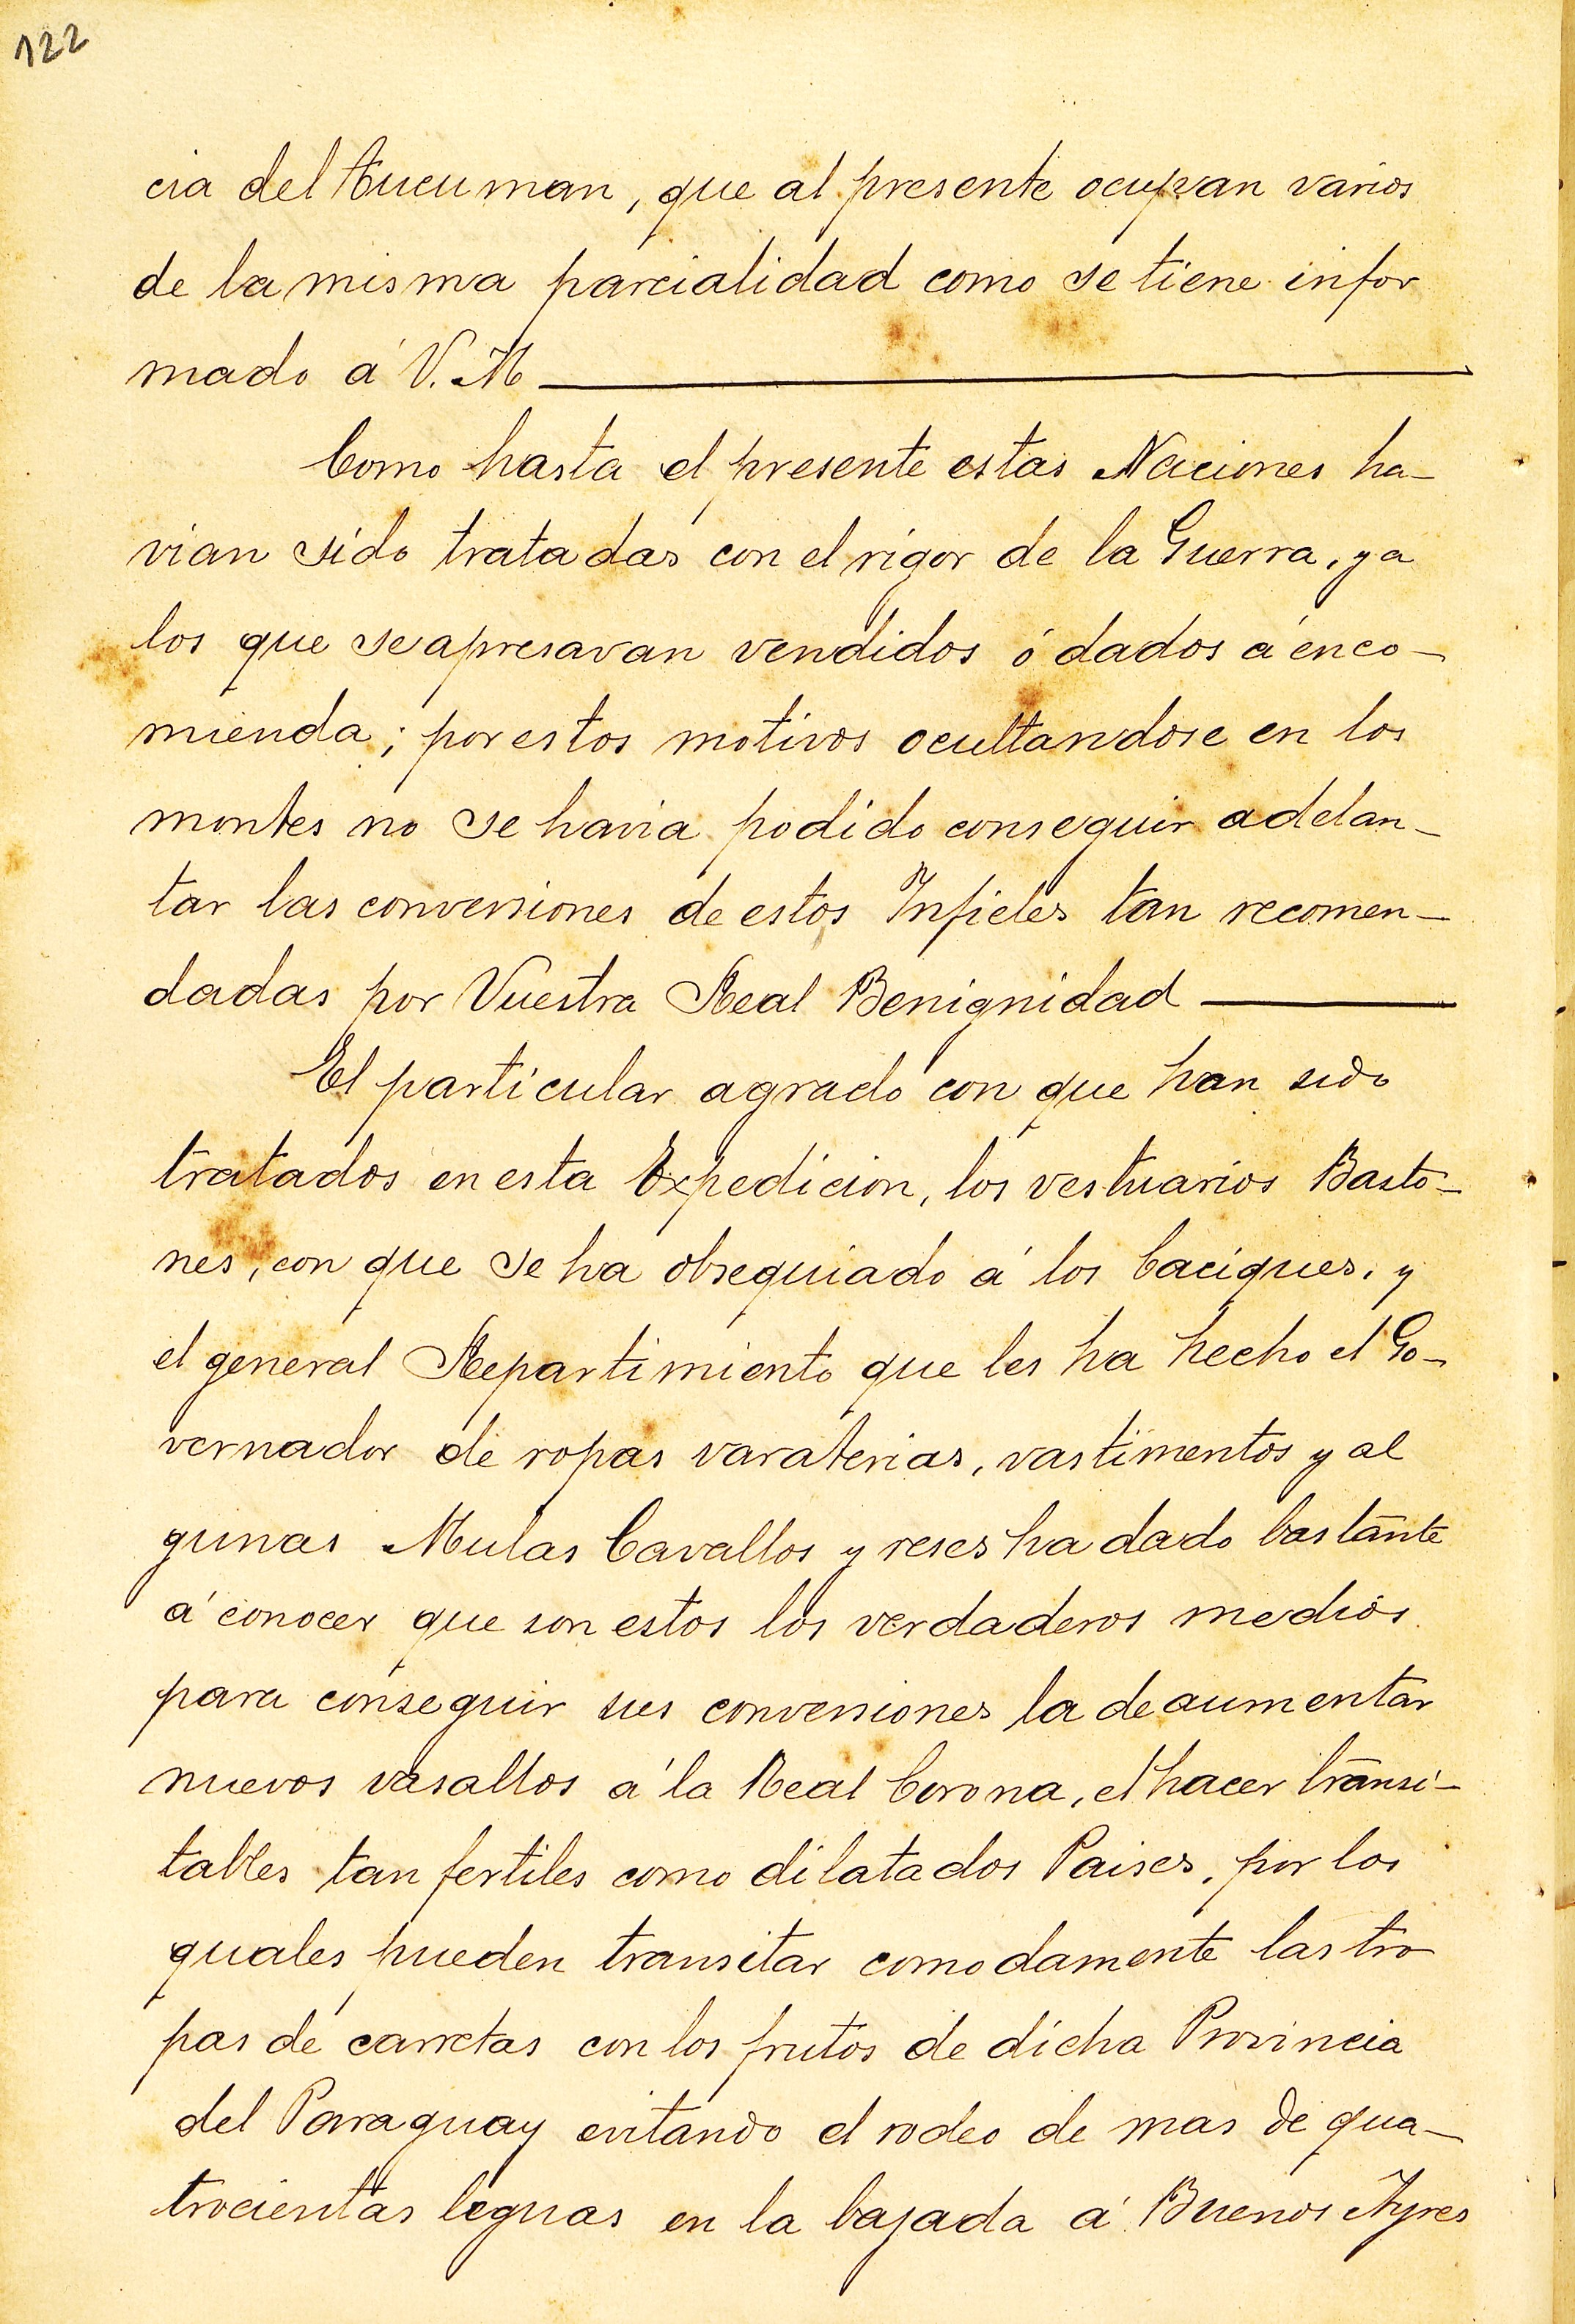 122
cia del Tucuman, que al presente ocupan varios
de la misma parcialidad como se tiene infor
mado á V. M
Como hasta el presente estas Naciones ha-
vian sido tratadas con el rigor de la Guerra, ya
los que se apresavan vendidos ó dados á enco-
mienda; por estos motivos ocultandose en los
montes no se havia podido conseguir adelan-
tar las conversiones de estos Infieles tan recomen-
dadas por Vuestra Real Benignidad
El particular agrado con que han sido
tratados en esta Expedicion, los vestuarios Basto-
nes, con que se ha obsequiado á los Caciques, y
el general Repartimiento que les ha hecho el Go-
vernador de ropas varaterias, vastimentos y al
gunas Mulas Cavallos y reses ha dado bastante
á conocer que son estos los verdaderos medios
para conseguir sus conversiones la de aumentar
nuevos vasallos á la Real Corona, el hacer transi-
tables tan fertiles como dilatados Paises, por los
quales pueden transitar comodamente las tro
pas de carretas con los frutos de dicha Provincia
del Paraguay evitando el rodeo de mas de qua-
trocientas leguas en la bajada á Buenos Ayres